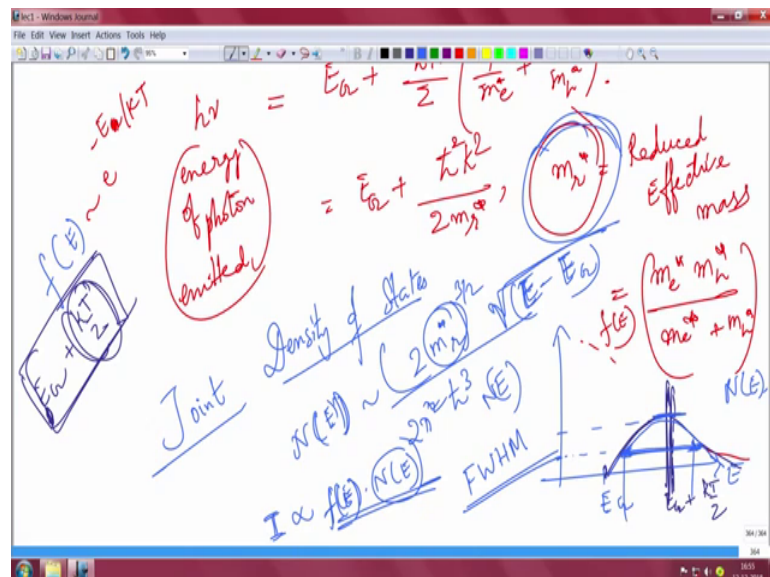 lec1 - Windows Journal
File Edit View Insert Actions Tools Help
hν = E_G + (1/m_e* + 1/m_h*).
f(E) ~ e^-E_G/KT
(energy of photon emitted)
= E_G + ħ²k²/2m_r*, m_r* = Reduced Effective mass
= (m_e* m_h*/m_e* + m_h*)
E_G + KT/2
Joint Density of States
N(E) ~ (2 m_r*)^3/2/2π²ħ³ √(E - E_G)
N(E)
I ∝ f(E) · N(E)
FWHM
f(E)
N(E)
E_G
E_G + KT/2
E
364 / 364
364
16:55